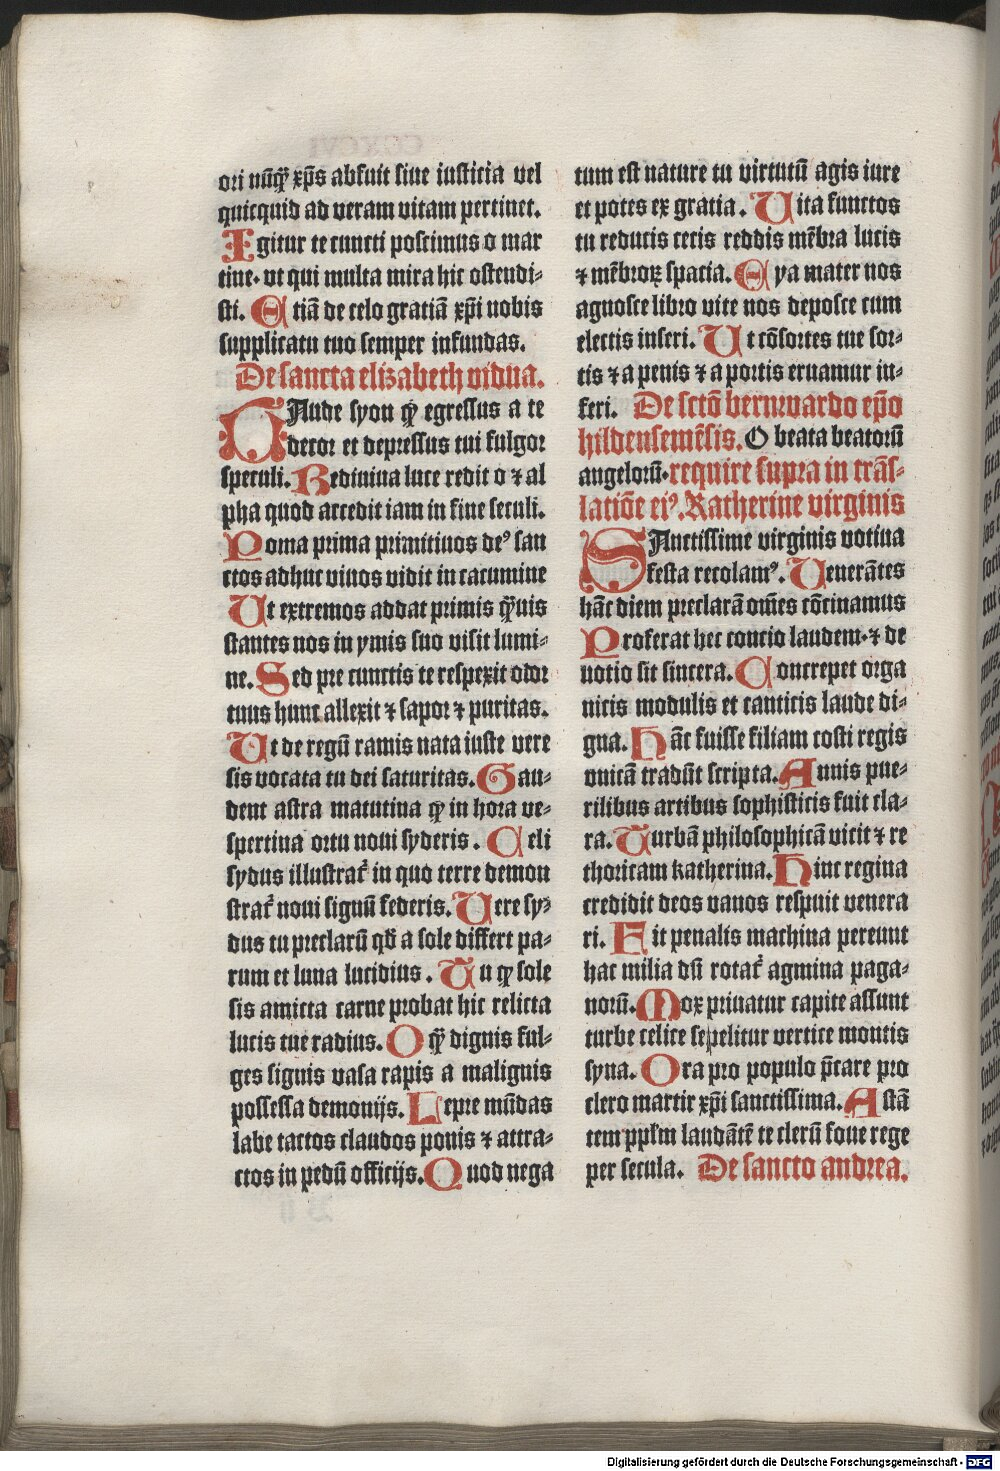 ori nūq̄ xp̄s abfuit siue iusticia vel
quicquid ad veram vitam pertinet.
Igitur te cuncti poscimus o mar
tine· vt qui multa mira hic ostendi⸗
sti. Etiā de celo gratiā xp̄i nobis
supplicatu tuo semper infundas.
De sancta elizabeth vidua.
GAude syon q̄ egressus a te
decor et depressus tui fulgor
speculi. Rediuiua luce redit o ⁊ al
pha quod accedit iam in fine seculi.
Poma prima primitiuos deꝰ san
ctos adhuc viuos vidit in cacumine
Ut extremos addat primis q̄uis
stantes nos in ymis suo visit lumi⸗
ne. Sed pre cunctis te respexit odor
tuus hunc allexit ⁊ sapor ⁊ puritas.
Ut de regū ramis nata iuste vere
sis vocata tu dei saturitas. Gau⸗
dent astra matutina q̄ in hora ve⸗
spertina ortu noui syderis. Celi
sydus illustrat᷑ in quo terre demon
strat᷑ noui signū federis. Uere sy⸗
dus tu preclarū qđ a sole differt pa⸗
rum et luna lucidius. Tu q̄ sole
sis amicta carne probat hic relicta
lucis tue radius. O q̄ dignis ful⸗
ges signis vasa rapis a malignis
possessa demonijs. Lepre mūdas
labe tactos claudos ponis ⁊ attra⸗
ctos in pedū officijs. Quod nega
tum est nature tu virtutū agis iure
et potes ex gratia. Uita functos
tu reducis cecis reddis mēbra lucis
⁊ mēbroꝝ spacia. Eya mater nos
agnosce libro vite nos deposce cum
electis inseri. Ut cōsortes tue sor⸗
tis ⁊ a penis ⁊ a portis eruamur in⸗
feri. De sctō bernwardo ep̄o
hildensemēsis. O beata beatorū
angelorū· require supra in trās⸗
latiōe eiꝰ. Katherine virginis
SAnctissime virginis votiua
festa recolamꝰ. Uenerātes
hāc diem preclarā om̄es cōcinamus
Proferat hec concio laudem· ⁊ de
uotio sit sincera. Concrepet orga
nicis modulis et canticis laude di⸗
gna. Hāc fuisse filiam costi regis
vnicā tradūt scripta. Annis pue⸗
rilibus artibus sophisticis fuit cla⸗
ra. Turbā philosophicā vicit ⁊ re
thoricam katherina. Hinc regina
credidit deos vanos respuit venera
ri. Fit penalis machina pereunt
hac milia dū rotat᷑ agmina paga⸗
norū. Mox priuatur capite assunt
turbe celice sepelitur vertice montis
syna. Ora pro populo p̄care pro
clero martir xp̄i sanctissima. Astā
tem ppl̄m laudātē te clerū foue rege
per secula. De sancto andrea.
Digitalisierung gefördert durch die Deutsche Forschungsgemeinschaft - DFG